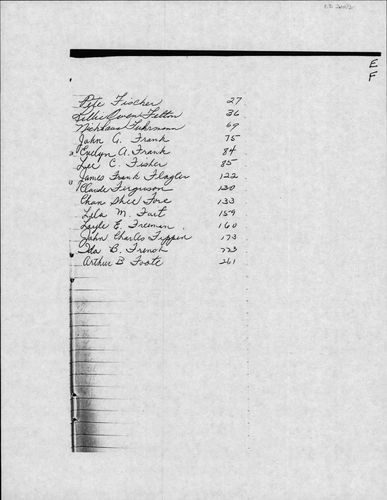 E
F
Pete Fischer 27
Billie Owen Felton 36
Nicklaus Fuhrmann 69
John G. Frank 75
Evelyn A. Frank 84
Lee C. Fisher 85
James Frank Flagler 122
Claude Ferguson 130
Chan Shee Fore 133
Lela M. Furt 159
Loyle E. Freeman 160
John Charles Fippen 173
Ida B. French 223
Arthur B Foote 261